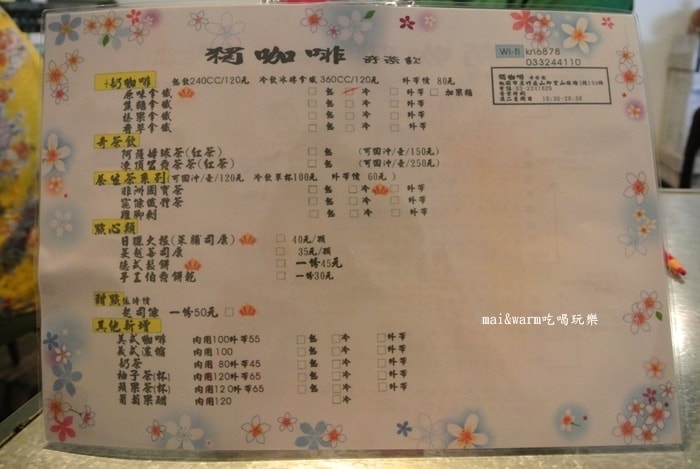 獨咖啡 奇茶飲
Wi-fi kn6878
033244110
獨咖啡
+奶咖啡 熱飲240CC/120元 冷飲冰磚拿鐵360CC/120元 外帶價 80元
原味拿鐵 □熱 □冷 □外帶 □加果糖
焦糖拿鐵 □ □ □ □
榛果拿鐵 □ □ □ □
香草拿鐵 □ □ □ □
奇茶飲
阿薩姆球茶(紅茶) □熱 (可回沖/壺/150元)
凍頂蜜香茶(紅茶) □熱 (可回沖/壺/250元)
養生茶系列(可回沖/壺/120元 冷飲單杯100元 外帶價 60元)
非洲國寶茶 □熱 □冷 □外帶
窈窕纖孅茶 □熱 □冷 □外帶
雞腳刺 □熱 □冷 □外帶
點心類
日曬大根(菜脯司康) □ 40元/顆
蔓越莓司康 □ 35元/顆
德式鬆餅 □ 一份45元
手工伯爵餅乾 □ 一份30元
甜點 依時價
起司條 一份50元 □
其他新增
美式咖啡 內用100外帶55 □熱 □冷 □外帶
義式濃縮 內用100 □熱
奶茶 內用 80外帶45 □熱 □冷 □外帶
柚子茶(杯) 內用120外帶65 □熱 □冷 □外帶
蘋果茶(杯) 內用120外帶65 □熱 □冷 □外帶
葡萄果醋 內用120 □冷
mai&warm吃喝玩樂